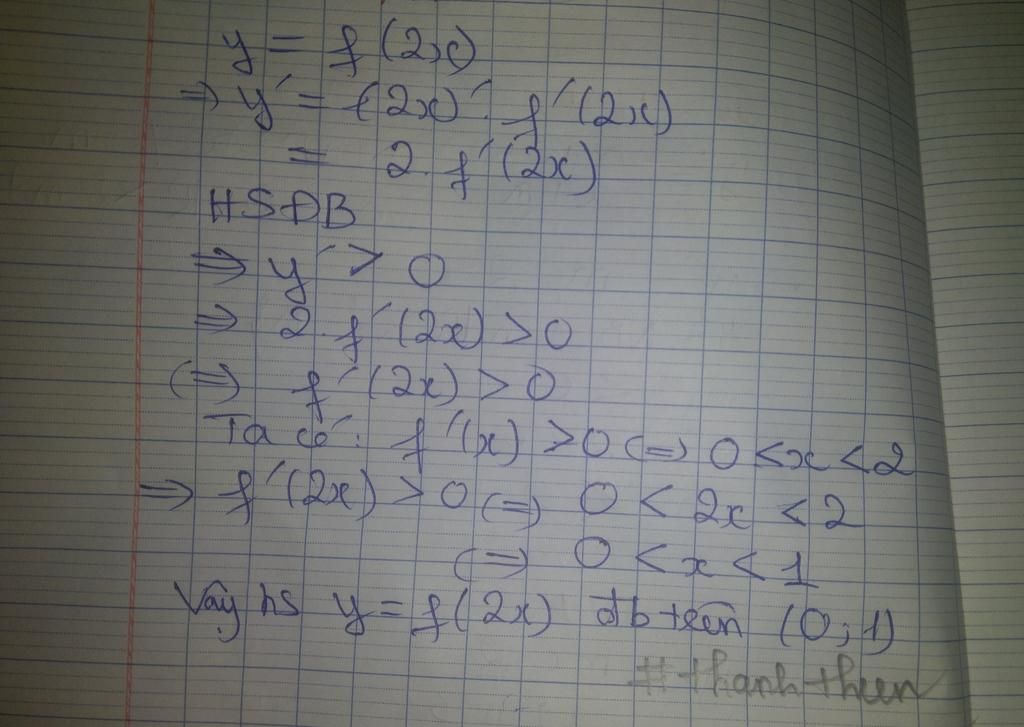 y = f(2x)
⇒ y' = (2x)'. f'(2x)
= 2. f'(2x)
HSĐB
⇒ y' > 0
⇒ 2. f'(2x) > 0
(⇒) f'(2x) > 0
Ta có: f'(x) > 0 (=) 0 < x < 2
⇒ f'(2x) > 0 (=) 0 < 2x < 2
(=) 0 < x < 1
Vậy hs y = f(2x) đb trên (0; 1)
#thanhthuen